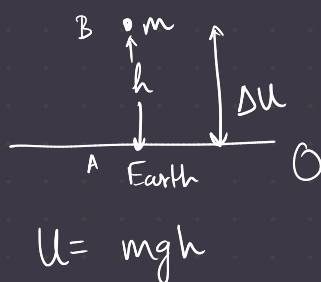 B m
h
ΔU
A
Earth
O
U = mgh